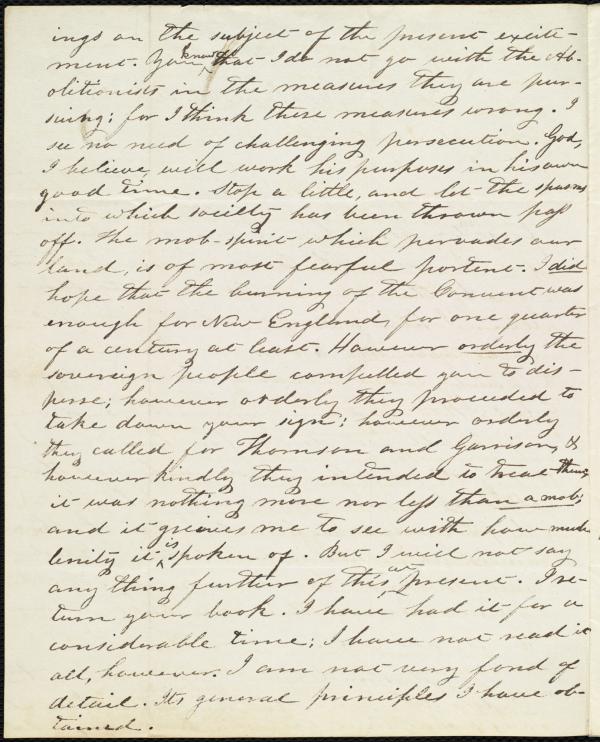 ings on the subject of the present excite-
ment. You know that I do not go with the Ab-
olitionists in the measures they are pur-
suing; for I think these measures wrong. I
see no need of challenging persecution. God,
I believe, will work his purposes in his own
good time. Stop a little, and let the spasms
into which society has been thrown pass
off. The mob-spirit which pervades our
land, is of most fearful portent. I did
hope that the burning of the Convent was
enough for New England, for one quarter
of a century at least. However orderly the
sovereign people compelled you to dis-
perse; however orderly they proceeded to
take down your sign; however orderly
they called for Thomson and Garrison, &
however kindly they intended to treat them,
it was nothing more nor less than a mob;
and it grieves me to see with how much
lenity it is spoken of. But I will not say
any thing further of this at present. I re-
turn your book. I have had it for a
considerable time; I have not read it
all, however. I am not very fond of
detail. Its general principles I have ob-
tained.